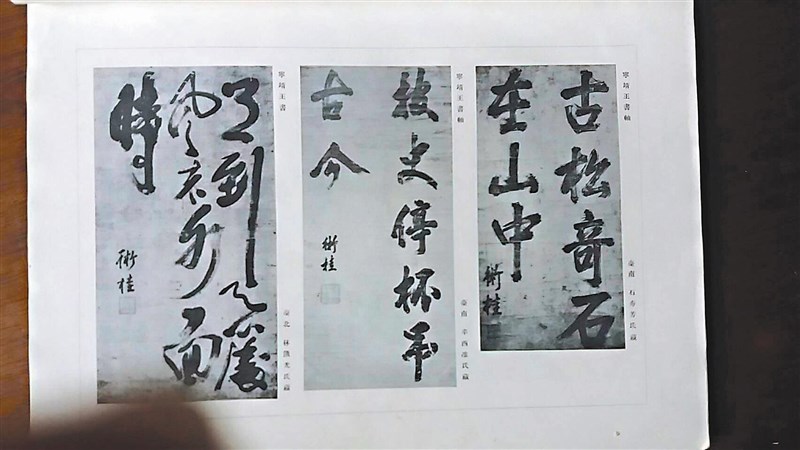 寧靖王書軸
古松奇石
在山中
術桂
臺南 石秀芳氏藏
寧靖王書軸
披史停杯弔
古今
術桂
臺南 辛西淮氏藏
寧靖王書
月到天心處
風來水面
時
術桂
臺北 林熊光氏藏